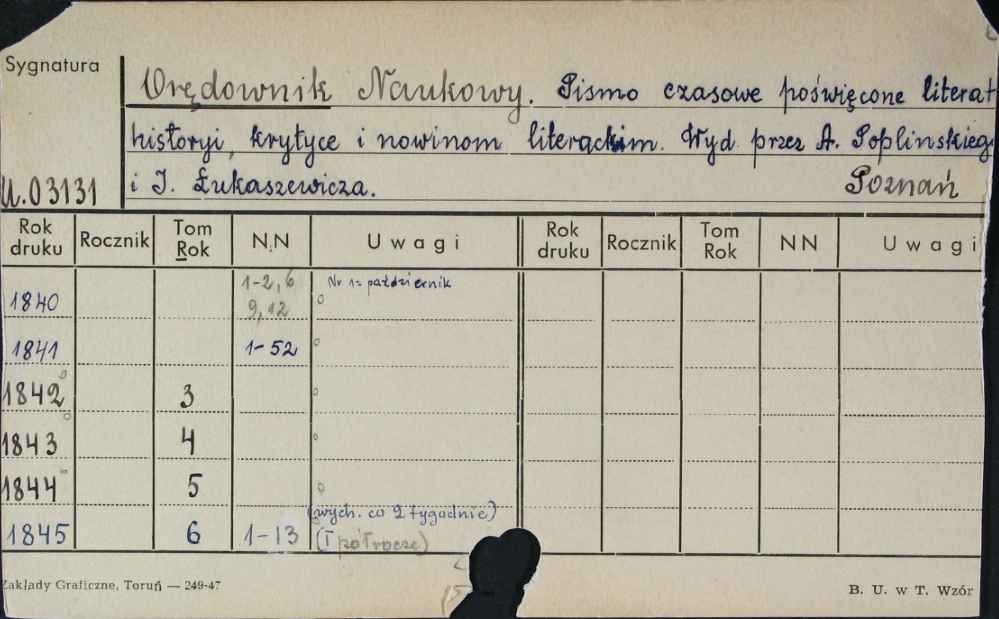 Sygnatura
Orędownik Naukowy. Pismo czasowe poświęcone literat
historyi, krytyce i nowinom literackim. Wyd przez A. Poplinskieg
U.03131 i J. Łukaszewicza. Poznań
Rok druku Rocznik Tom Rok N.N Uwagi Rok druku Rocznik Tom Rok NN Uwagi
1840 1-2, 6 9, 12 Nr 1= październik
1841 1-52
1842 3
1843 4
1844 5
(wych. co 2 tygodnie)
1845 6 1-13 (I półrocze)
Zakłady Graficzne, Toruń — 249-47 B. U. w T. Wzór